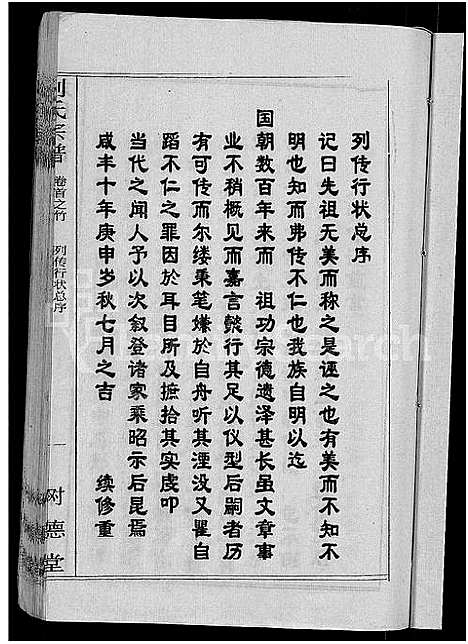 列传行状总序
记曰先祖无美而称之是诬之也有美而不知不
明也知而弗传不仁也我族自明以迄
国朝数百年来而 祖功宗德遗泽甚长虽文章事
业不稍概见而嘉言懿行其足以仪型后嗣者历
有可传而尔缕秉笔嫌於自舟听其湮没又瞿自
蹈不仁之罪因於耳目所及摭拾其实戋叩
当代之闻人予以次叙登诸家乘昭示后昆焉
咸丰十年庚申岁秋七月之吉 续修重
刘氏宗谱 卷首之竹 列传行状总序 一 树德堂